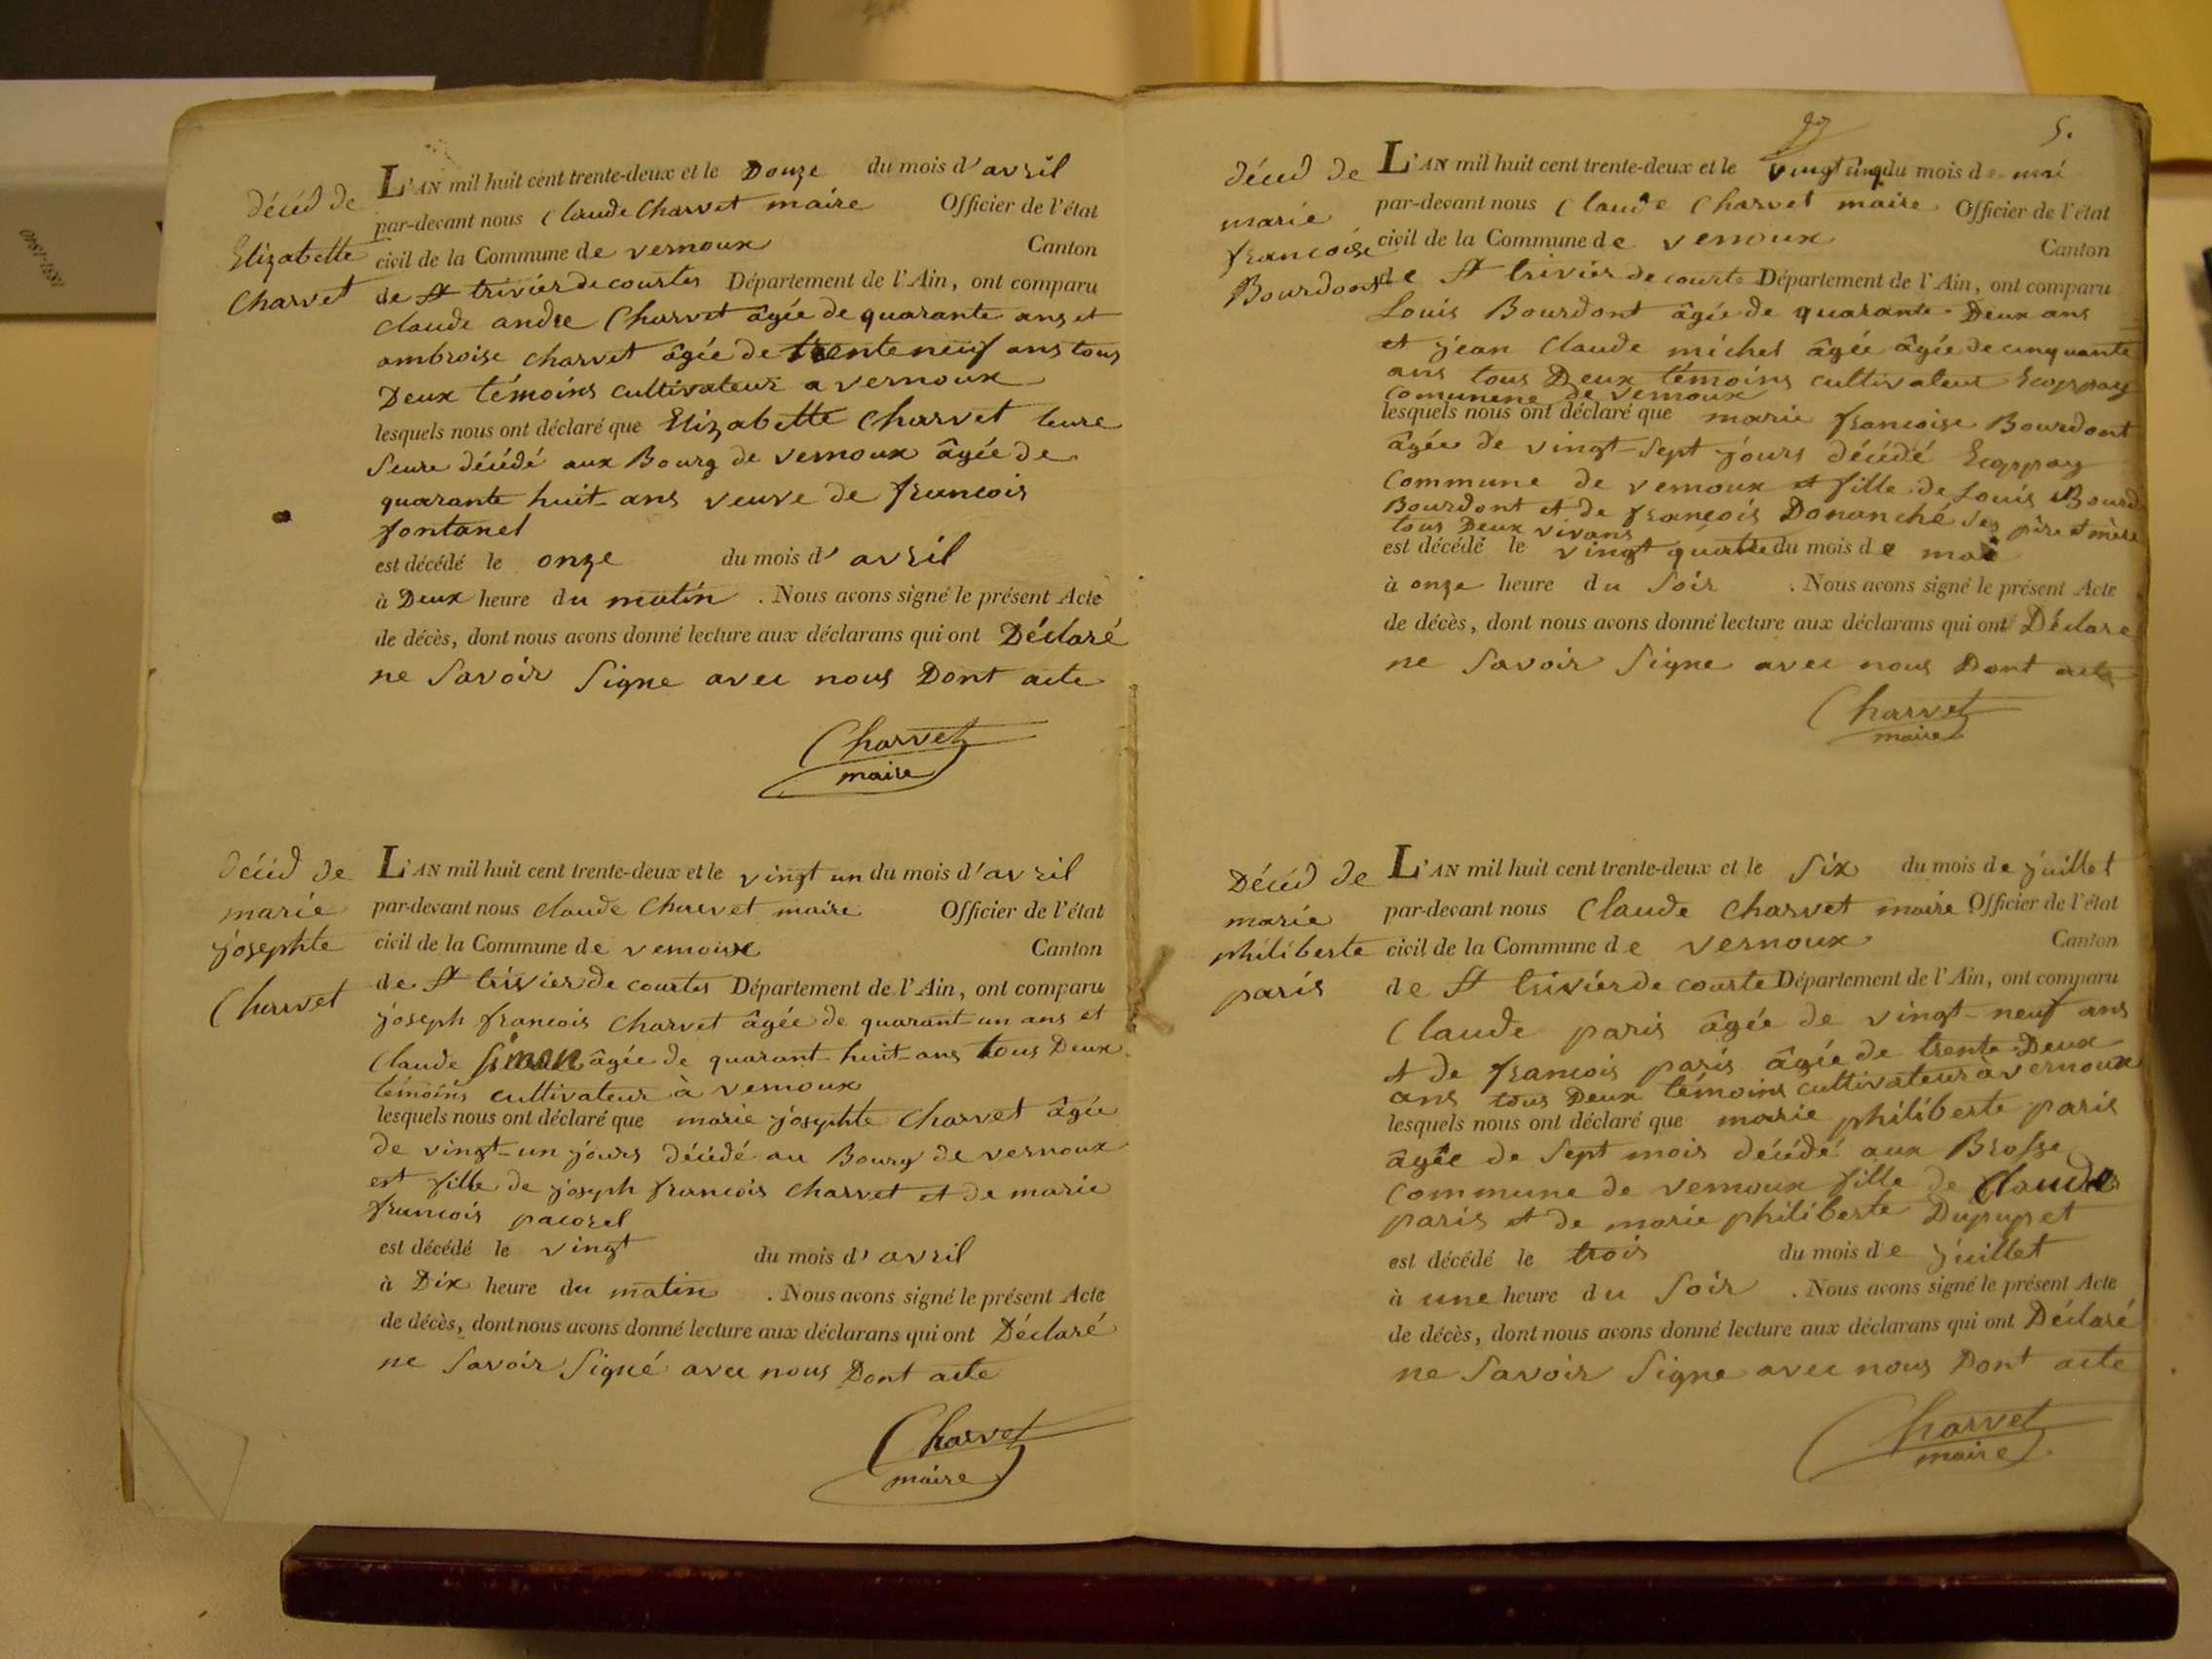 décéd de
Elizabette
Charvet
L'AN mil huit cent trente-deux et le Douze du mois d'avril
par-devant nous Claude Charvet maire Officier de l'état
civil de la Commune de vernoux Canton
de St trivier de courtes Département de l'Ain, ont comparu
claude andre Charvet âgée de quarante ans et
ambroise charvet âgée de trente neuf ans tous
Deux témoins cultivateur a vernoux
lesquels nous ont déclaré que Elizabette Charvet leure
seure décédé aux Bourg de vernoux âgée de
quarante huit ans veuve de francois
fontanel
est décédé le onze du mois d'avril
à Deux heure du matin . Nous avons signé le présent Acte
de décès, dont nous avons donné lecture aux déclarans qui ont Déclaré
ne Savoir Signe avec nous Dont acte
Charvet
maire
décéd de
marie
josephte
Charvet
L'AN mil huit cent trente-deux et le vingt un du mois d'avril
par-devant nous claude Charvet maire Officier de l'état
civil de la Commune de vernoux Canton
de St trivier de courtes Département de l'Ain, ont comparu
joseph francois charvet âgée de quarant un ans et
Claude Simon âgée de quarant huit ans tous Deux
témoins cultivateur à vernoux
lesquels nous ont déclaré que marie josephte Charvet âgée
de vingt-un jours décédé au Bourg de vernoux
est fille de joseph francois charvet et de marie
francois pacorel
est décédé le vingt du mois d'avril
à Dix heure du matin . Nous avons signé le présent Acte
de décès, dont nous avons donné lecture aux déclarans qui ont Déclaré
ne Savoir Signé avec nous Dont acte
Charvet
maire
5.
décéd de
marie
francoise
Bourdont
L'AN mil huit cent trente-deux et le vingt cinq du mois de mai
par-devant nous Claude Charvet maire Officier de l'état
civil de la Commune de vernoux Canton
de St trivier de courte Département de l'Ain, ont comparu
Louis Bourdont âgée de quarante Deux ans
et jean Claude michel âgée âgée de cinquante
ans tous Deux témoins cultivateur Ecoppay
Comunene de vernoux
lesquels nous ont déclaré que marie francoise Bourdont
âgée de vingt-Sept jours décédé Ecoppay
Commune de vernoux et fille de Louis Bourd
Bourdont et de francois Donanché ses père et mère
tous Deux vivans
est décédé le vingt quatre du mois de mai
à onze heure du Soir . Nous avons signé le présent Acte
de décès, dont nous avons donné lecture aux déclarans qui ont Déclare
ne Savoir Signe avec nous Dont acte
Charvet
maire
Décéd de
marie
philiberte
paris
L'AN mil huit cent trente-deux et le Six du mois de juillet
par-devant nous Claude Charvet maire Officier de l'état
civil de la Commune de vernoux Canton
de St trivier de courte Département de l'Ain, ont comparu
Claude paris âgée de vingt-neuf ans
et de francois paris âgée de trente Deux
ans tous Deux témoins cultivateur à vernoux
lesquels nous ont déclaré que marie philiberte paris
âgée de Sept mois décédé aux Brosse
Commune de vernoux fille de Claude
paris et de marie philiberte Dupupet
est décédé le trois du mois de juillet
à une heure du Soir . Nous avons signé le présent Acte
de décès, dont nous avons donné lecture aux déclarans qui ont Déclaré
ne Savoir Signe avec nous Dont acte
Charvet
maire